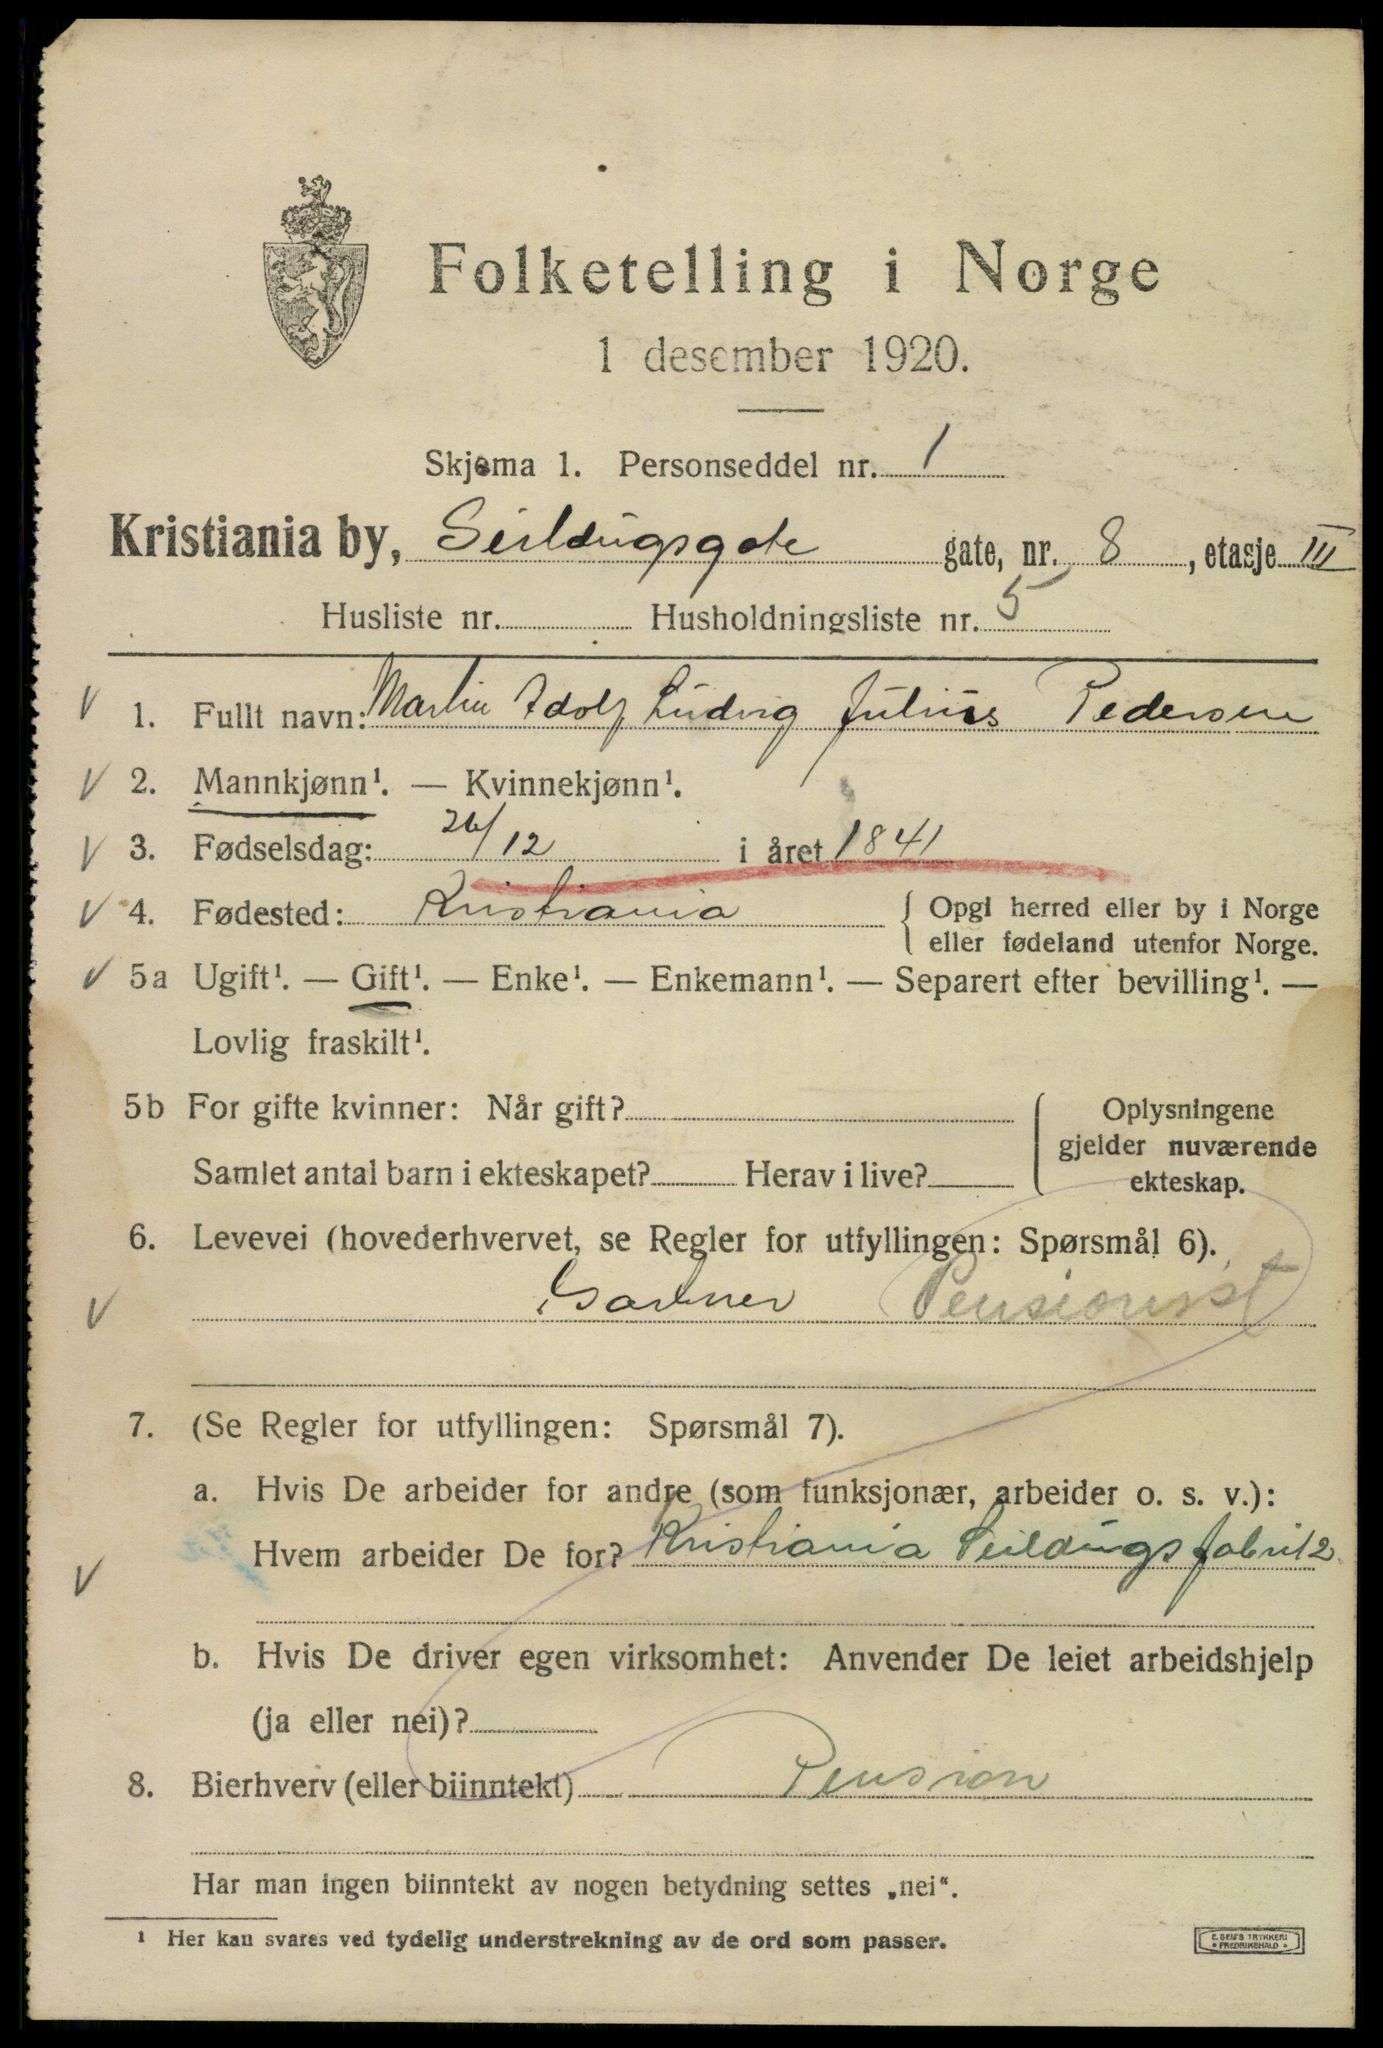 Folketelling i Norge
1 desember 1920.
Skjema 1. Personseddel nr. 1
Kristiania by, Seildugsgate gate, nr. 8, etasje III
Husliste nr. Husholdningsliste nr. 5
V 1. Fullt navn: Martin Adolf Ludvig Julius Pedersen
V 2. Mannkjønn¹. — Kvinnekjønn¹.
V 3. Fødselsdag: 26/12 i året 1841
V 4. Fødested: Kristiania { Opgi herred eller by i Norge
eller fødeland utenfor Norge.
V 5a Ugift¹. — Gift¹. — Enke¹. — Enkemann¹. — Separert efter bevilling¹. —
Lovlig fraskilt¹.
5b For gifte kvinner: Når gift? { Oplysningene
gjelder nuværende
Samlet antal barn i ekteskapet? Herav i live? ekteskap.
6. Levevei (hovederhvervet, se Regler for utfyllingen: Spørsmål 6).
V Gartner Pensionist
7. (Se Regler for utfyllingen: Spørsmål 7).
a. Hvis De arbeider for andre (som funksjonær, arbeider o. s. v.):
V Hvem arbeider De for? Kristiania Seildugsfabrik
b. Hvis De driver egen virksomhet: Anvender De leiet arbeidshjelp
(ja eller nei)?
8. Bierhverv (eller biinntekt) Pension
Har man ingen biinntekt av nogen betydning settes „nei“.
¹ Her kan svares ved tydelig understrekning av de ord som passer.
E. SEM'S TRYKKERI
• FREDRIKSHALD •